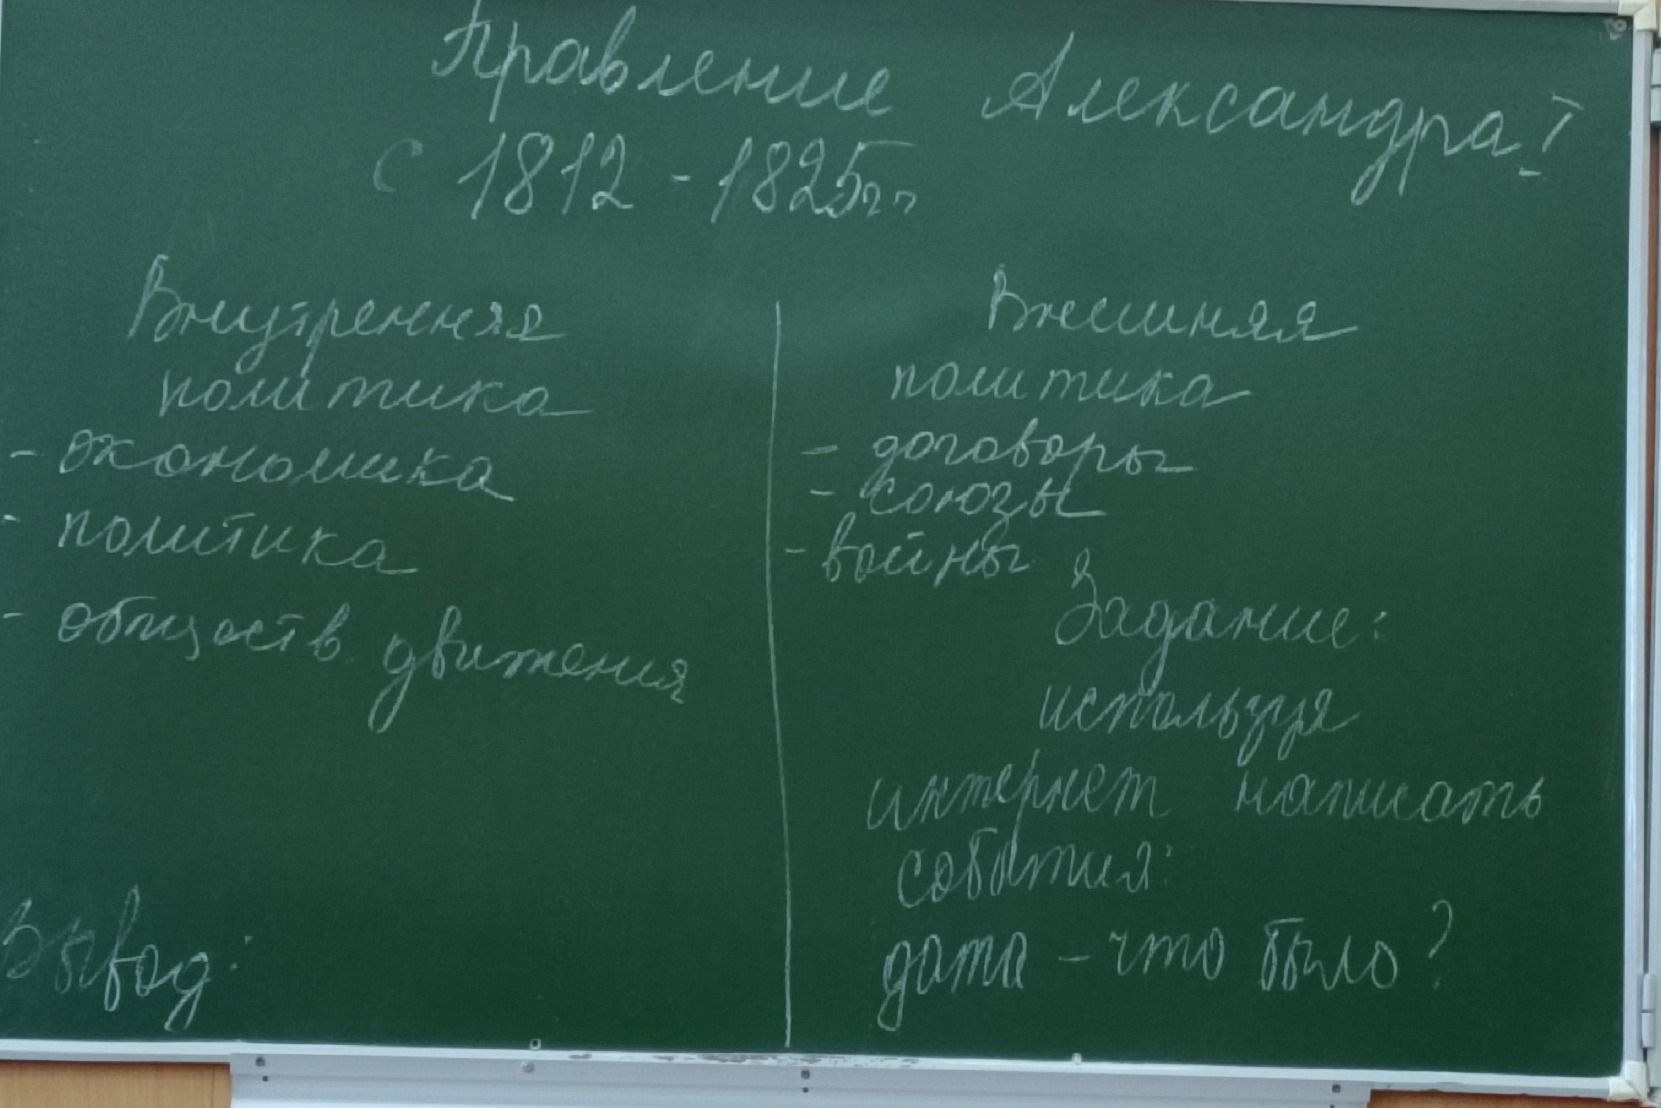 Правление Александра I
с 1812 - 1825гг
Внутренняя
политика
- экономика
- политика
- обществ. движения
Внешняя
политика
- договоры
- союзы
- войны
Задание:
используя
интернет написать
события:
дата - что было?
Вывод: